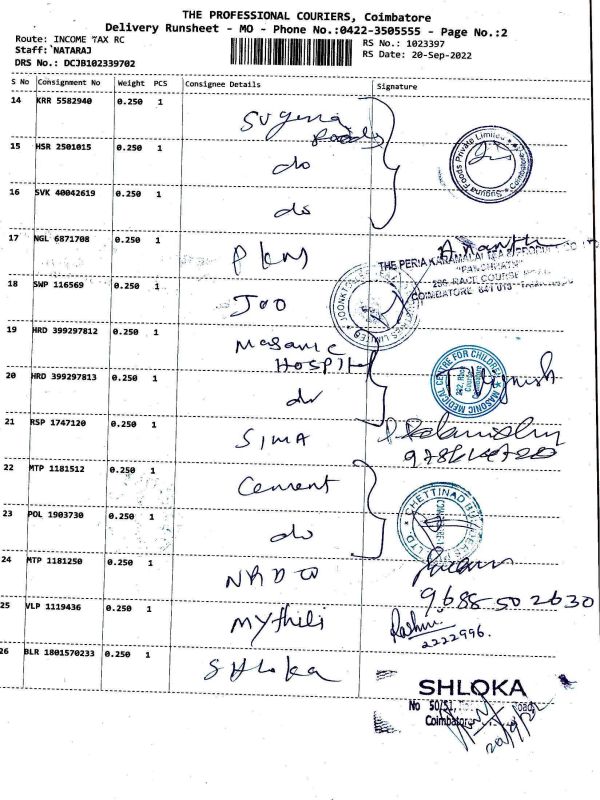 THE PROFESSIONAL COURIERS, Coimbatore
Delivery Runsheet - MO - Phone No.:0422-3505555 - Page No.:2
Route: INCOME TAX RC
RS No.: 1023397
Staff: NATARAJ
RS Date: 20-Sep-2022
DRS No.: DCJB102339702
S No Consignment No Weight PCS Consignee Details Signature
14 KRR 5582940 0.250 1 Suguna Foods
15 HSR 2501015 0.250 1 do
Suguna Foods Private Limited Coimbatore
16 SVK 40042619 0.250 1 do
17 NGL 6871708 0.250 1
THE PERIA KARAMALAI TEA & PRODUCE CO LTD
"PANCHRATN"
286, RACE COURSE
COIMBATORE 641 018
18 SWP 116569 0.250 1
19 HRD 399297812 0.250 1 Masonic Hospital
MASONIC MEDICAL CENTRE FOR CHILDREN
20 HRD 399297813 0.250 1 do
21 RSP 1747120 0.250 1 SIMA
22 MTP 1181512 0.250 1 Cement
23 POL 1903730 0.250 1 do
CHETTINAD
24 MTP 1181250 0.250 1
9688502630
25 VLP 1119436 0.250 1 Mythili
2222996.
26 BLR 1801570233 0.250 1 SHloka
SHLOKA
No 50/51,
Coimbatore
20/9/22